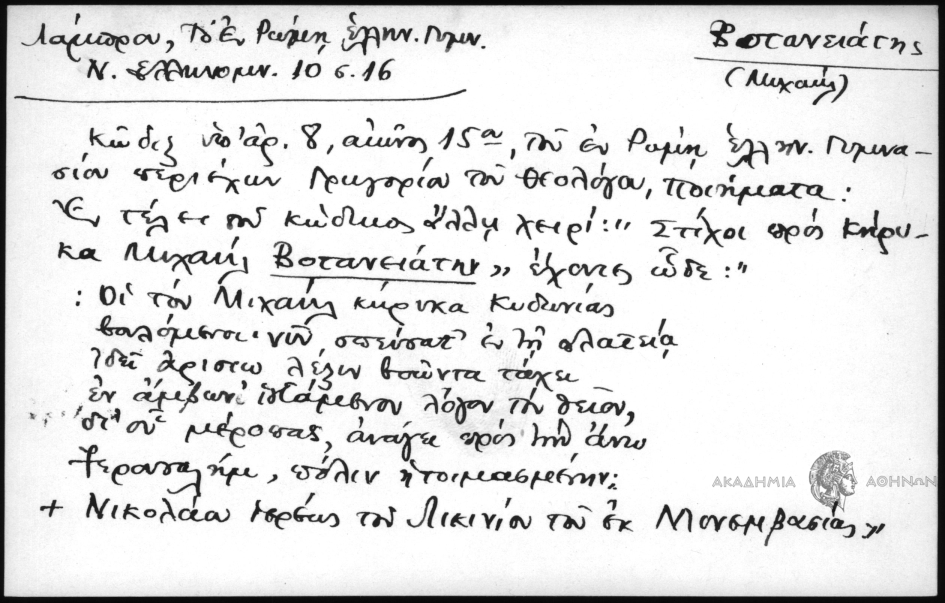 Λάμπρου, Τὸ ἐν Ῥώμῃ ἑλλην. Γυμν.
Ν. Ἑλληνομν. 10 σ. 16
Βοτανειάτης
(Μιχαήλ)
Κῶδιξ ὑπ' ἀρ. 8, αἰῶνος 15ου, τοῦ ἐν Ῥώμῃ ἑλλην. Γυμνα-
σίου περιέχων Γρηγορίου τοῦ Θεολόγου, ποιήματα:
Ἐν τέλει τοῦ κώδικος ἄλλῃ χειρί: " Στίχοι πρὸς κήρυ-
κα Μιχαὴλ Βοτανειάτην » ἔχοντες ὧδε: "
: Οἱ τὸν Μιχαὴλ κήρυκα Κυδωνίας
βουλόμενοι νῦν σπεύσατ' ἐν τῇ πλατείᾳ
λέξιν βοῶντα τάχει
ἐν ἄμβωνι ἱστάμενον λόγον τὸν θεῖον,
δι' οὗ μέροπας, ἀνάγει πρὸς τὴν ἄνω
Ἱερουσαλήμ, πόλιν ἡτοιμασμένην:
+ Νικολάου ἱερέως τοῦ Λικινίου τοῦ ἐκ Μονεμβασίας »
ΑΚΑΔΗΜΙΑ ΑΘΗΝΩΝ